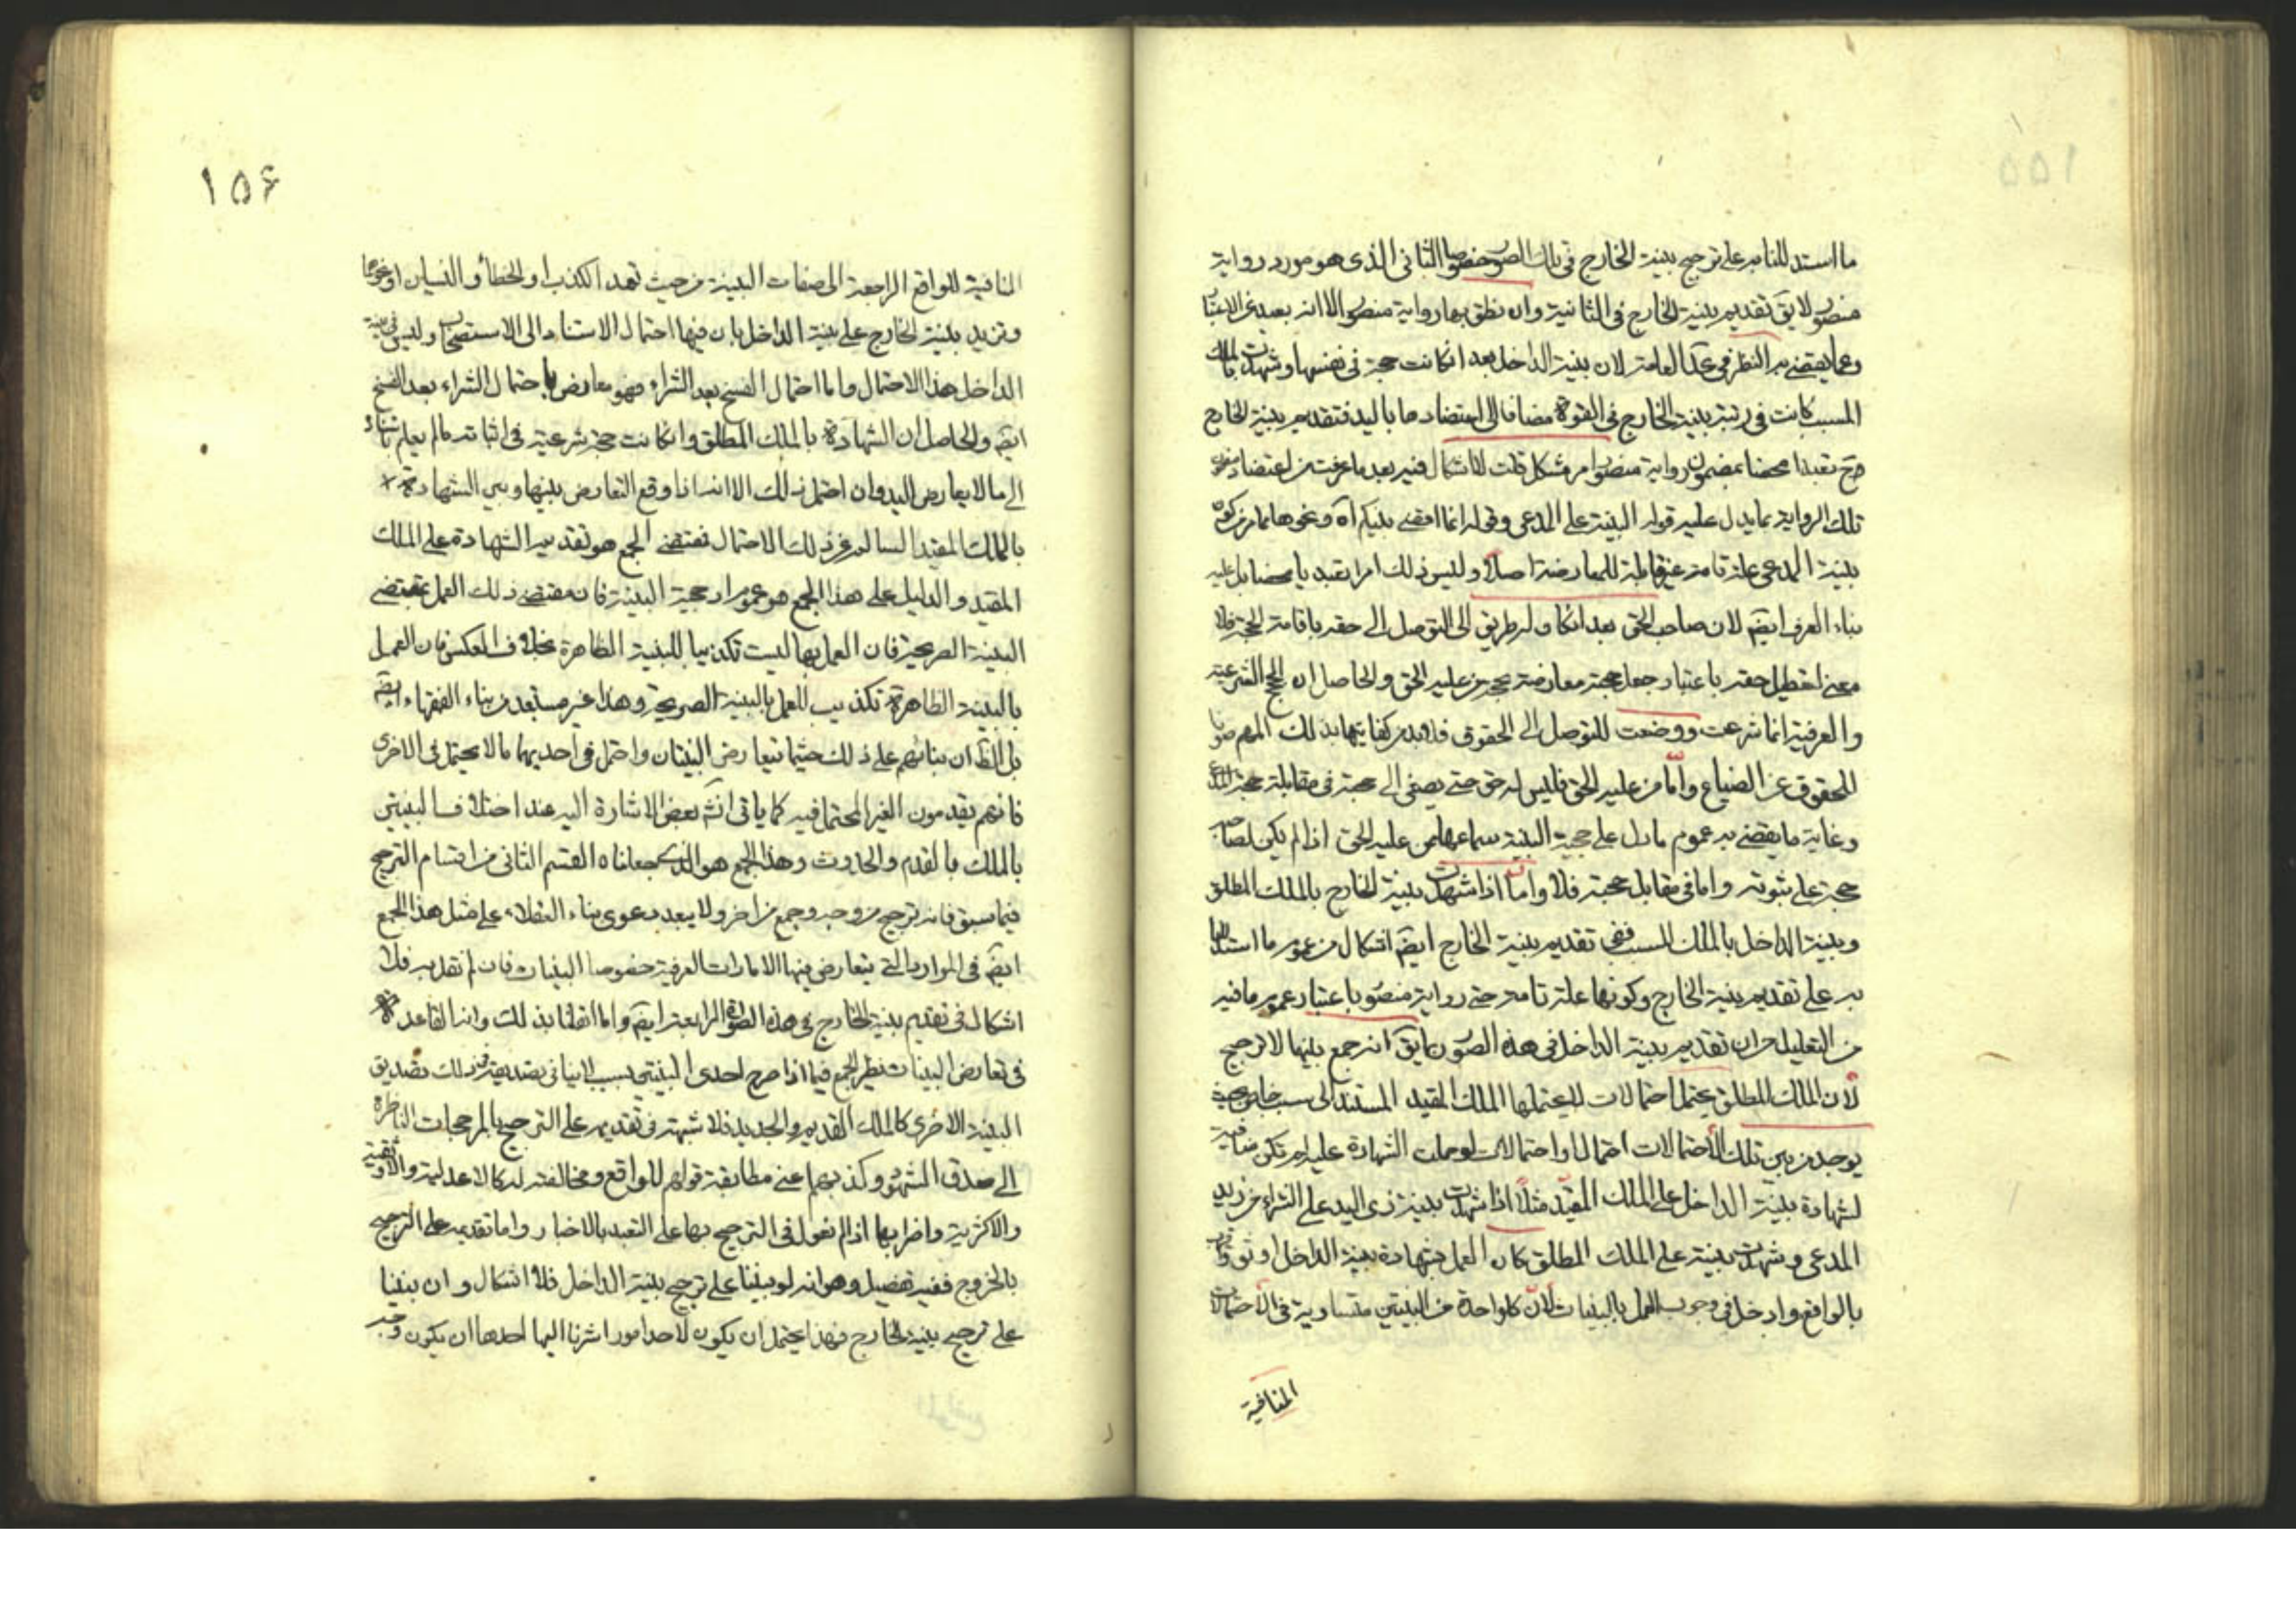 ما استدللنا به على ترجيح بينة الخارج في تلك الصور خصوصا الثاني الذي هو مورد رواية
منصور لا يق تقديم بينة الخارج في الثانية وان نطق بها رواية منصور الا انه بعيد عن الاعتبار
وعما يقتضيه النظر في الادلة العامة لان بينة الداخل بعد ان كانت حجة في نفسها وشهدت بالملك
المسبب كانت في رتبة بينة الخارج في القوة مضافا الى اعتضادها باليد فتقديم بينة الخارج
ح تعبدا محضا بمضمون رواية منصور امر مشكل قلت لا اشكال فيه بعد ما عرفت من اعتضاد مضمون
تلك الرواية بما يدل عليه قوله البينة على المدعي وقوله انما اقضي بينكم آه ونحوهما من كون
بينة المدعي علة تامة غير قابلة للمعارضة اصلا وليس ذلك امرا تعبديا محضا بل عليه
بناء العرف ايضا لان صاحب الحق بعد ان كان له طريق الى التوصل الى حقه باقامة الحجة فلا
معنى لتعطيل حقه باعتبار جعل حجته معارضة بحجة من عليه الحق والحاصل ان الحجج الشرعية
والعرفية انما شرعت ووضعت للتوصل الى الحقوق فلا بد من كفايتها بذلك المهم صونا
للحقوق عن الضياع واما من عليه الحق فليس له حق حتى يصغى الى حجة في مقابلة حجة
وغاية ما يقضي به عموم ما دل على حجية البينة سماعها ممن عليه الحق اذا لم يكن لصاحبه
حجة على ثبوته واما في مقابل حجة فلا واما اذا شهدت بينة الخارج بالملك المطلق
وبينة الداخل بالملك المسبب ففي تقديم بينة الخارج ايضا اشكال من عموم ما استدللنا
به على تقديم بينة الخارج وكونها علة تامة حتى رواية منصور باعتبار عموم ما فيه
من التعليل من ان تقديم بينة الداخل في هذه الصورة يق انه جمع بينهما لا ترجيح
لان الملك المطلق يحتمل احتمالات لا يحتملها الملك المقيد المستند الى سبب خاص بحيث
يوجد من بين تلك الاحتمالات احتمال او احتمالات لو حملت الشهادة عليه لم تكن منافية
لشهادة بينة الداخل على الملك المقيد مثلا اذا شهدت بينة ذي اليد على الشراء من زيد
المدعي وشهدت بينة على الملك المطلق كان العمل بشهادة بينة الداخل اوثق
بالواقع وادخل في وجوب العمل بالبينات لان كل واحدة من البينتين متساوية في الاحتمالات
المنافية
١٥۶
المنافية للواقع الراجعة الى صفات البينة من حيث تعمد الكذب او الخطأ والنسيان او نحوها
وتزيد بينة الخارج على بينة الداخل بان فيها احتمال الاستناد الى الاستصحاب وليس في بينة
الداخل هذا الاحتمال واما احتمال الفسخ بعد الشراء فهو معارض باحتمال الشراء بعد الفسخ
ايضا والحاصل ان الشهادة بالملك المطلق وان كانت حجة شرعية في اثباته ما لم يعلم باستناده
الى ما لا يعارض اليد وان احتمل ذلك الا انه اذا وقع التعارض بينها وبين الشهادة
بالملك المقيد السالم عن ذلك الاحتمال فمقتضى الجمع هو تقديم الشهادة على الملك
المقيد والدليل على هذا الجمع هو عموم ادلة حجية البينة فان مقتضى ذلك العمل بمقتضى
البينة الصريحة فان العمل بها ليست تكذيبا للبينة الظاهرة بخلاف العكس فان العمل
بالبينة الظاهرة تكذيب للعمل بالبينة الصريحة وهذا غير مستبعد من بناء الفقهاء ايضا
بل الظ ان بنائهم على ذلك حيثما تعارض البينتان واحتمل في احديهما ما لا يحتمل في الاخرى
فانهم يقدمون الغير المحتمل فيه كما ياتي انش بعض الاشارة اليه عند اختلاف البينتين
بالملك بالقدم والحدوث وهذا الجمع هو الذي جعلناه القسم الثاني من اقسام الترجيح
فيما سبق فانه ترجيح من وجه وجمع من اخر ولا يبعد دعوى بناء العقلاء على مثل هذا الجمع
ايضا في الموارد التي يتعارض فيها الامارات العرفية خصوصا البينات فان لم نقل به فلا
اشكال في تقديم بينة الخارج في هذه الصورة الرابعة ايضا واما ان قلنا بذلك وانه القاعدة
في تعارض البينات نظير الجمع فيما اذا صرح احدى البينتين بسبب لا ينافي تصديقه في ذلك تصديق
البينة الاخرى كالملك القديم والجديد فلا شبهة في تقديمه على الترجيح بالمرجحات الناظرة
الى صدق الشهود وكذبهم اعني مطابقة قولهم للواقع ومخالفته له كالاعدلية والاوثقية
والاكثرية واضرابها اذا لم نعول في الترجيح بها على التعبد بالاخبار واما تقديمه على الترجيح
بالخروج ففيه تفصيل وهو انه لو بنينا على ترجيح بينة الداخل فلا اشكال وان بنينا
على ترجيح بينة الخارج فهذا يحتمل ان يكون لاحد امور اشرنا اليها احدها ان يكون وجه